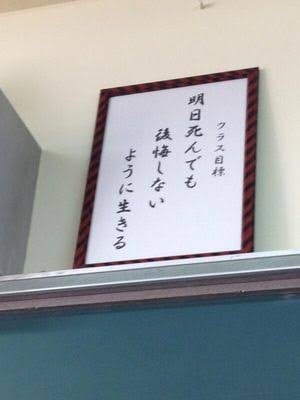 クラス目標
明日死んでも
後悔しない
ように生きる